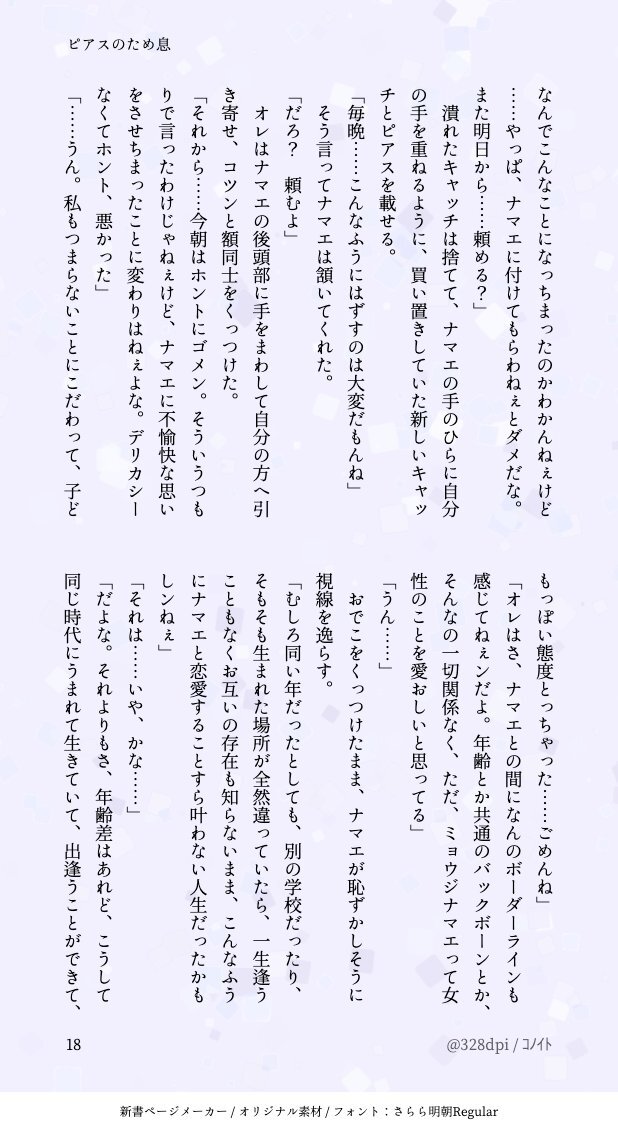 ピアスのため息
なんでこんなことになっちまったのかわかんねぇけど
……やっぱ、ナマエに付けてもらわねぇとダメだな。
また明日から……頼める？」
　潰れたキャッチは捨てて、ナマエの手のひらに自分
の手を重ねるように、買い置きしていた新しいキャッ
チとピアスを載せる。
「毎晩……こんなふうにはずすのは大変だもんね」
　そう言ってナマエは頷いてくれた。
「だろ？　頼むよ」
　オレはナマエの後頭部に手をまわして自分の方へ引
き寄せ、コツンと額同士をくっつけた。
「それから……今朝はホントにゴメン。そういうつも
りで言ったわけじゃねぇけど、ナマエに不愉快な思い
をさせちまったことに変わりはねぇよな。デリカシー
なくてホント、悪かった」
「……うん。私もつまらないことにこだわって、子ど
もっぽい態度とっちゃった……ごめんね」
「オレはさ、ナマエとの間になんのボーダーラインも
感じてねぇンだよ。年齢とか共通のバックボーンとか、
そんなの一切関係なく、ただ、ミョウジナマエって女
性のことを愛おしいと思ってる」
「うん……」
　おでこをくっつけたまま、ナマエが恥ずかしそうに
視線を逸らす。
「むしろ同い年だったとしても、別の学校だったり、
そもそも生まれた場所が全然違っていたら、一生逢う
こともなくお互いの存在も知らないまま、こんなふう
にナマエと恋愛することすら叶わない人生だったかも
しンねぇ」
「それは……いや、かな……」
「だよな。それよりもさ、年齢差はあれど、こうして
同じ時代にうまれて生きていて、出逢うことができて、
18
@328dpi / ｺﾉｲﾄ
新書ページメーカー / オリジナル素材 / フォント：さらら明朝Regular